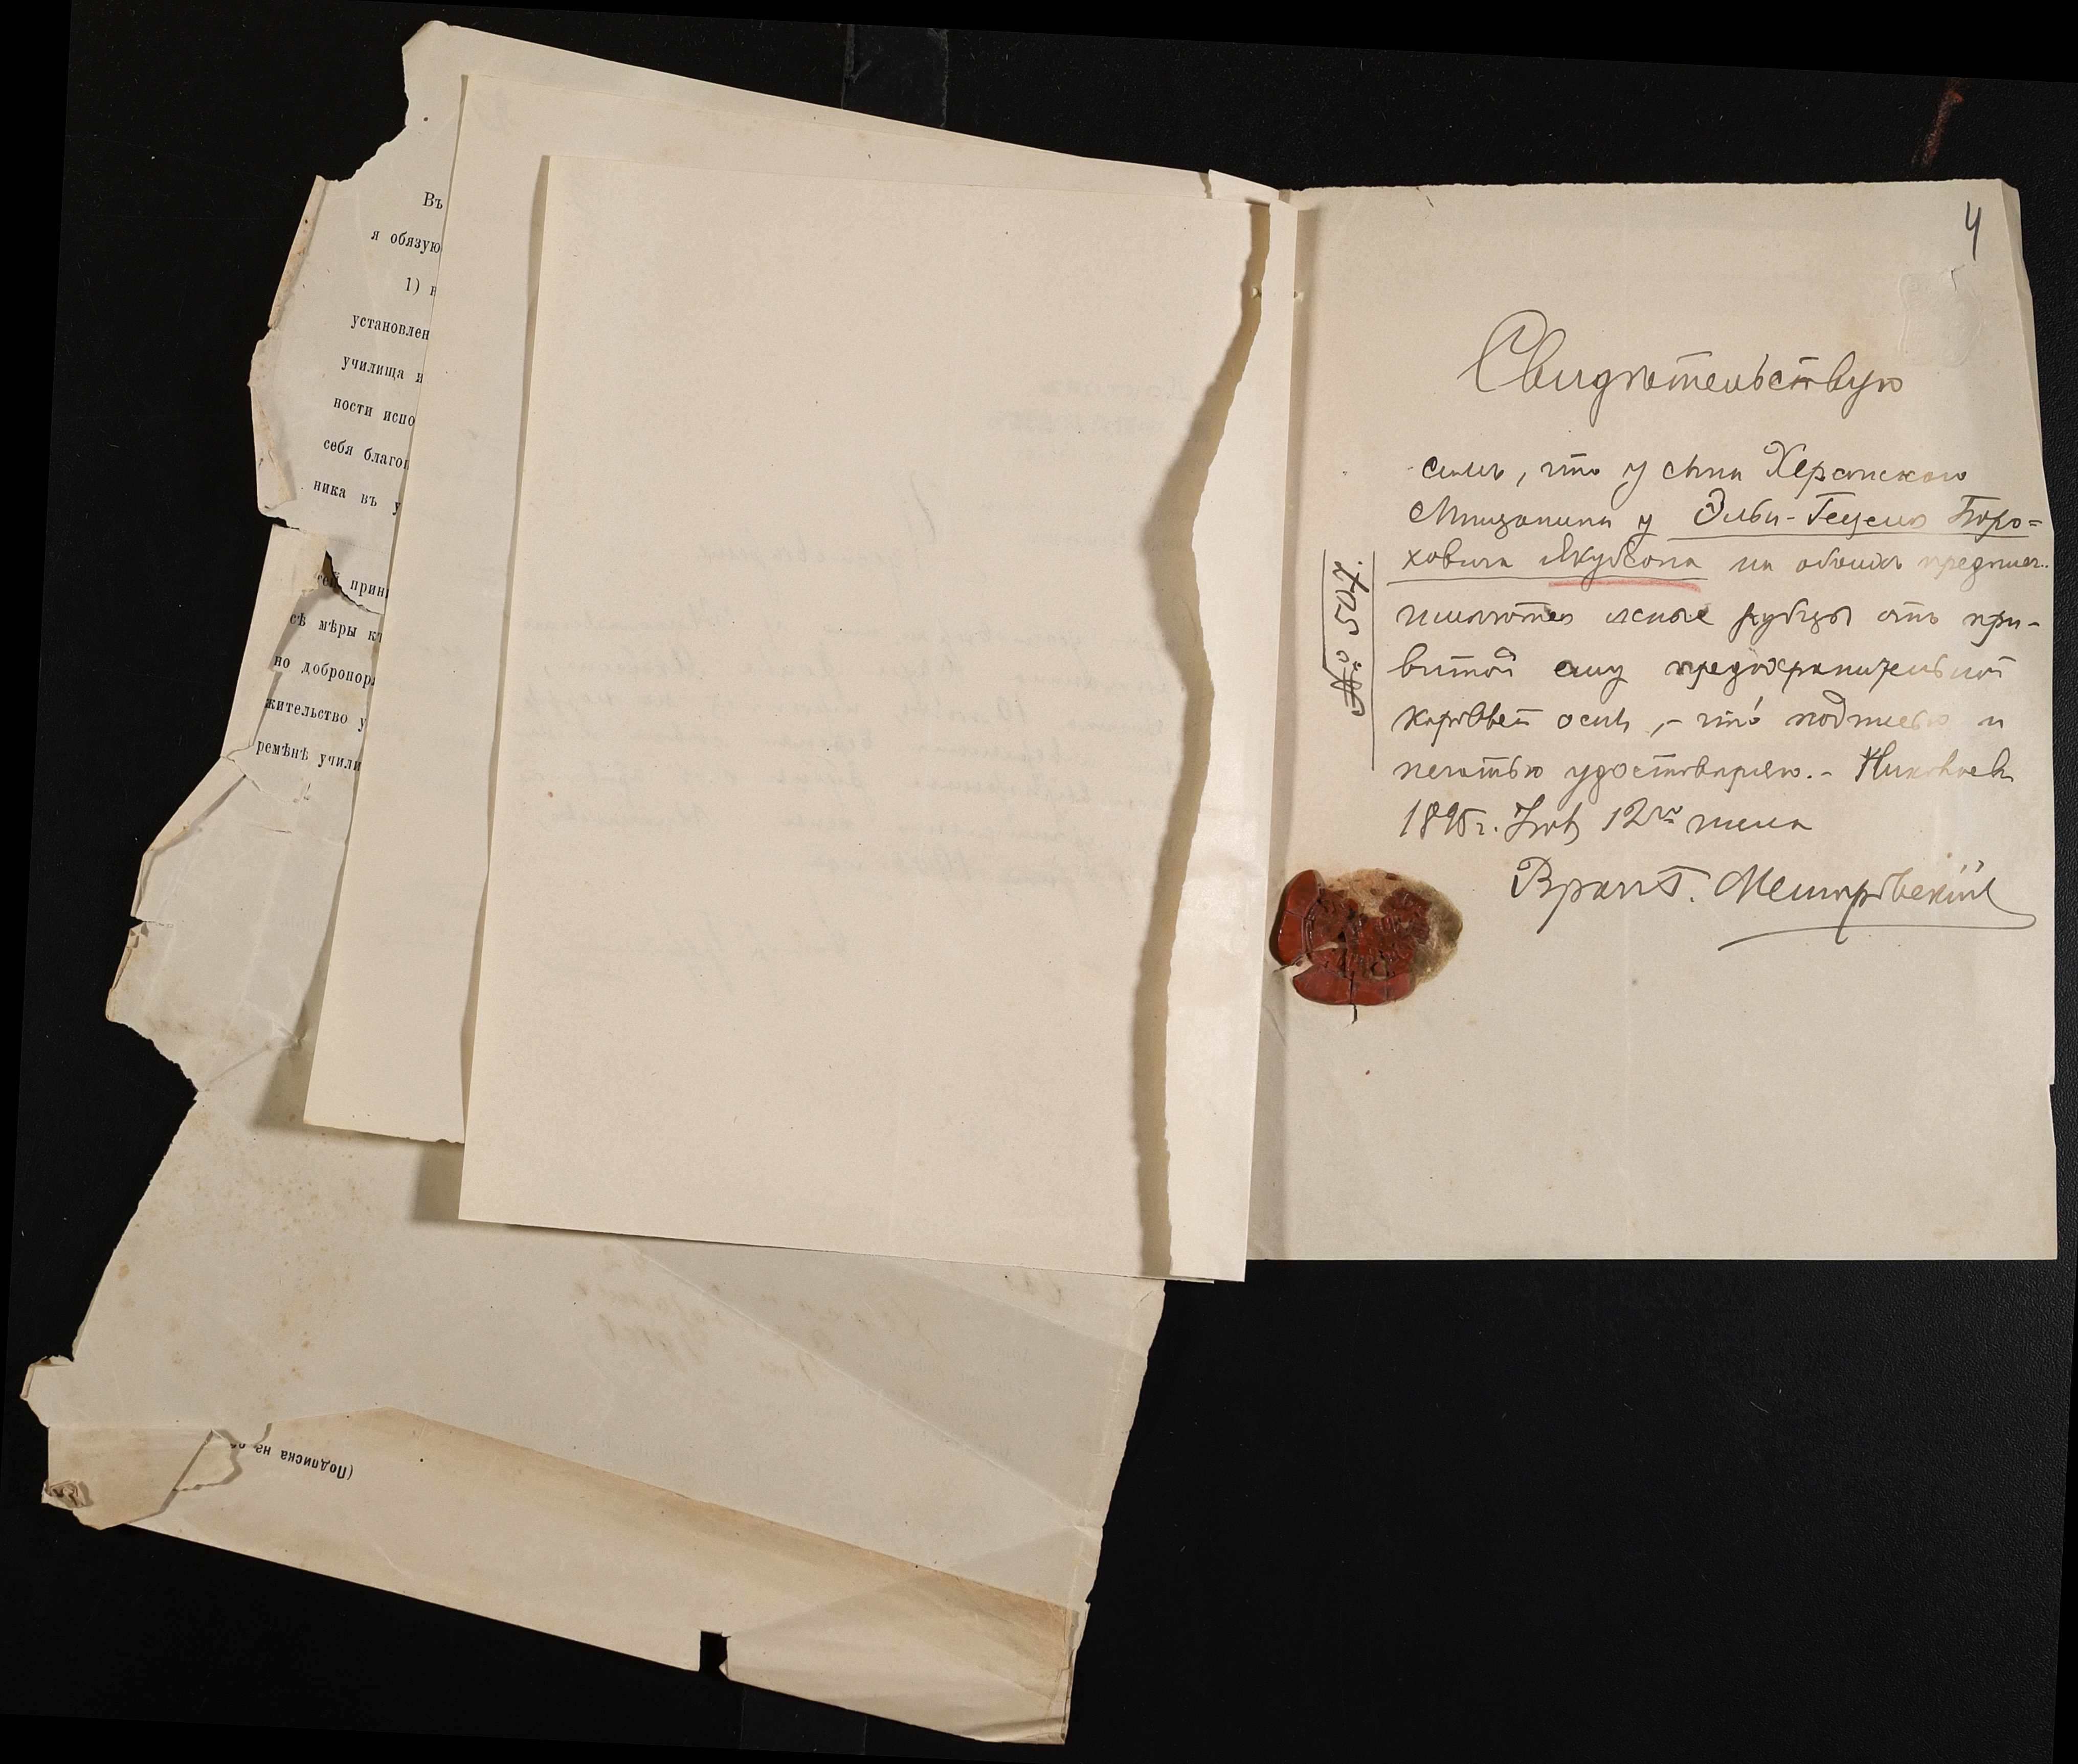 Въ
я обязую
1) н
установлен
училища н
ности испо
себя благоп
ника въ у
сей прин
сѣ мѣры къ
но добропор
жительство у
ремѣнѣ учили
(Подписка на
4
Свидѣтельствую
симъ, что у сына Херсонскаго
Мѣщанина у Эльи-Гецеля Боро=
ховича Якубсона на обѣихъ предплеч..
имѣются ясные рубцы отъ при-
витой ему предохранительной
коровьей оспы, - что подписью и
печатью удостовѣряю. - Николаевъ
1895 г. Іюля 12го дня
Врачъ.
№ 504.